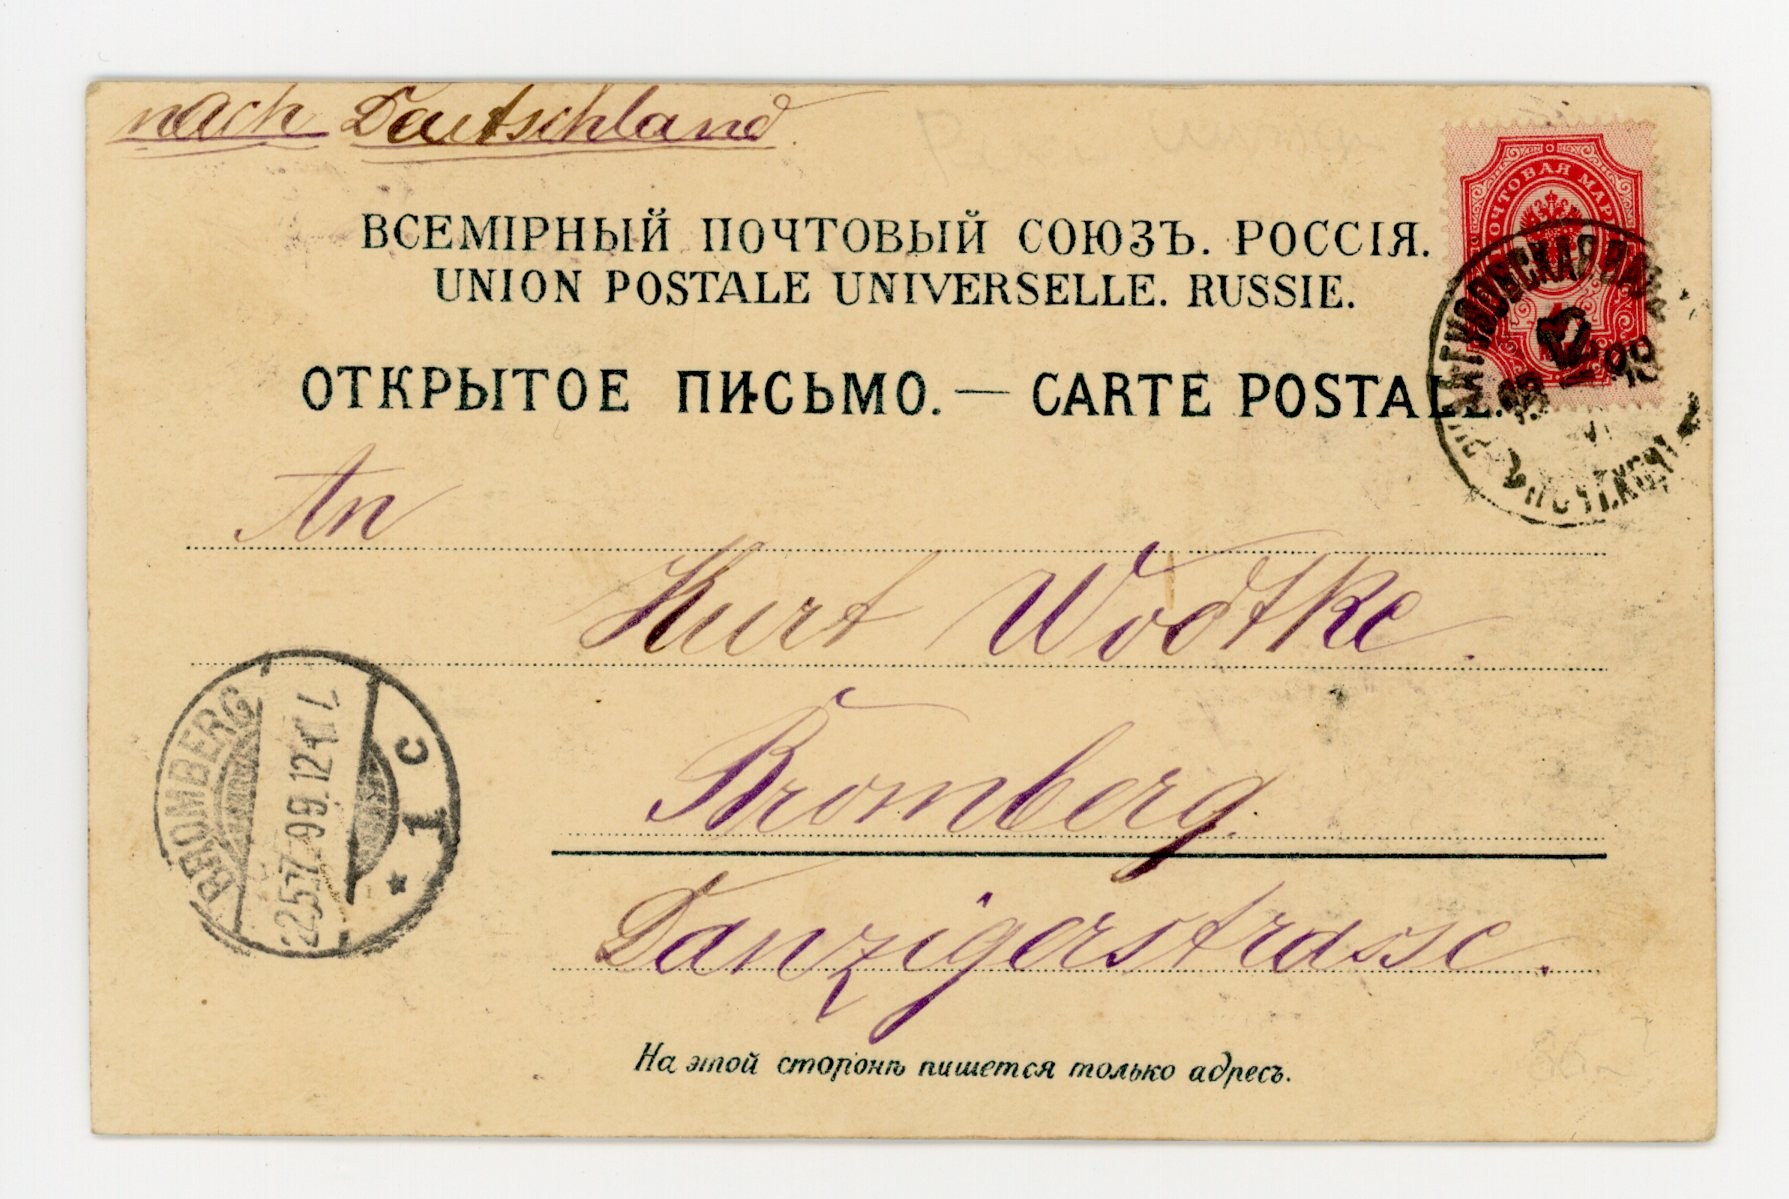 nach Deutschland.
ВСЕМІРНЫЙ ПОЧТОВЫЙ СОЮЗЪ. РОССІЯ.
UNION POSTALE UNIVERSELLE. RUSSIE.
ОТКРЫТОЕ ПИСЬМО. — CARTE POSTALE.
ПОЧТОВАЯ МАРКА
12
An
Kurt Wodtke.
Bromberg.
Danzigerstrasse.
BROMBERG
25.7.99.12-1N.
1 c
На этой сторонѣ пишется только адресъ.
86